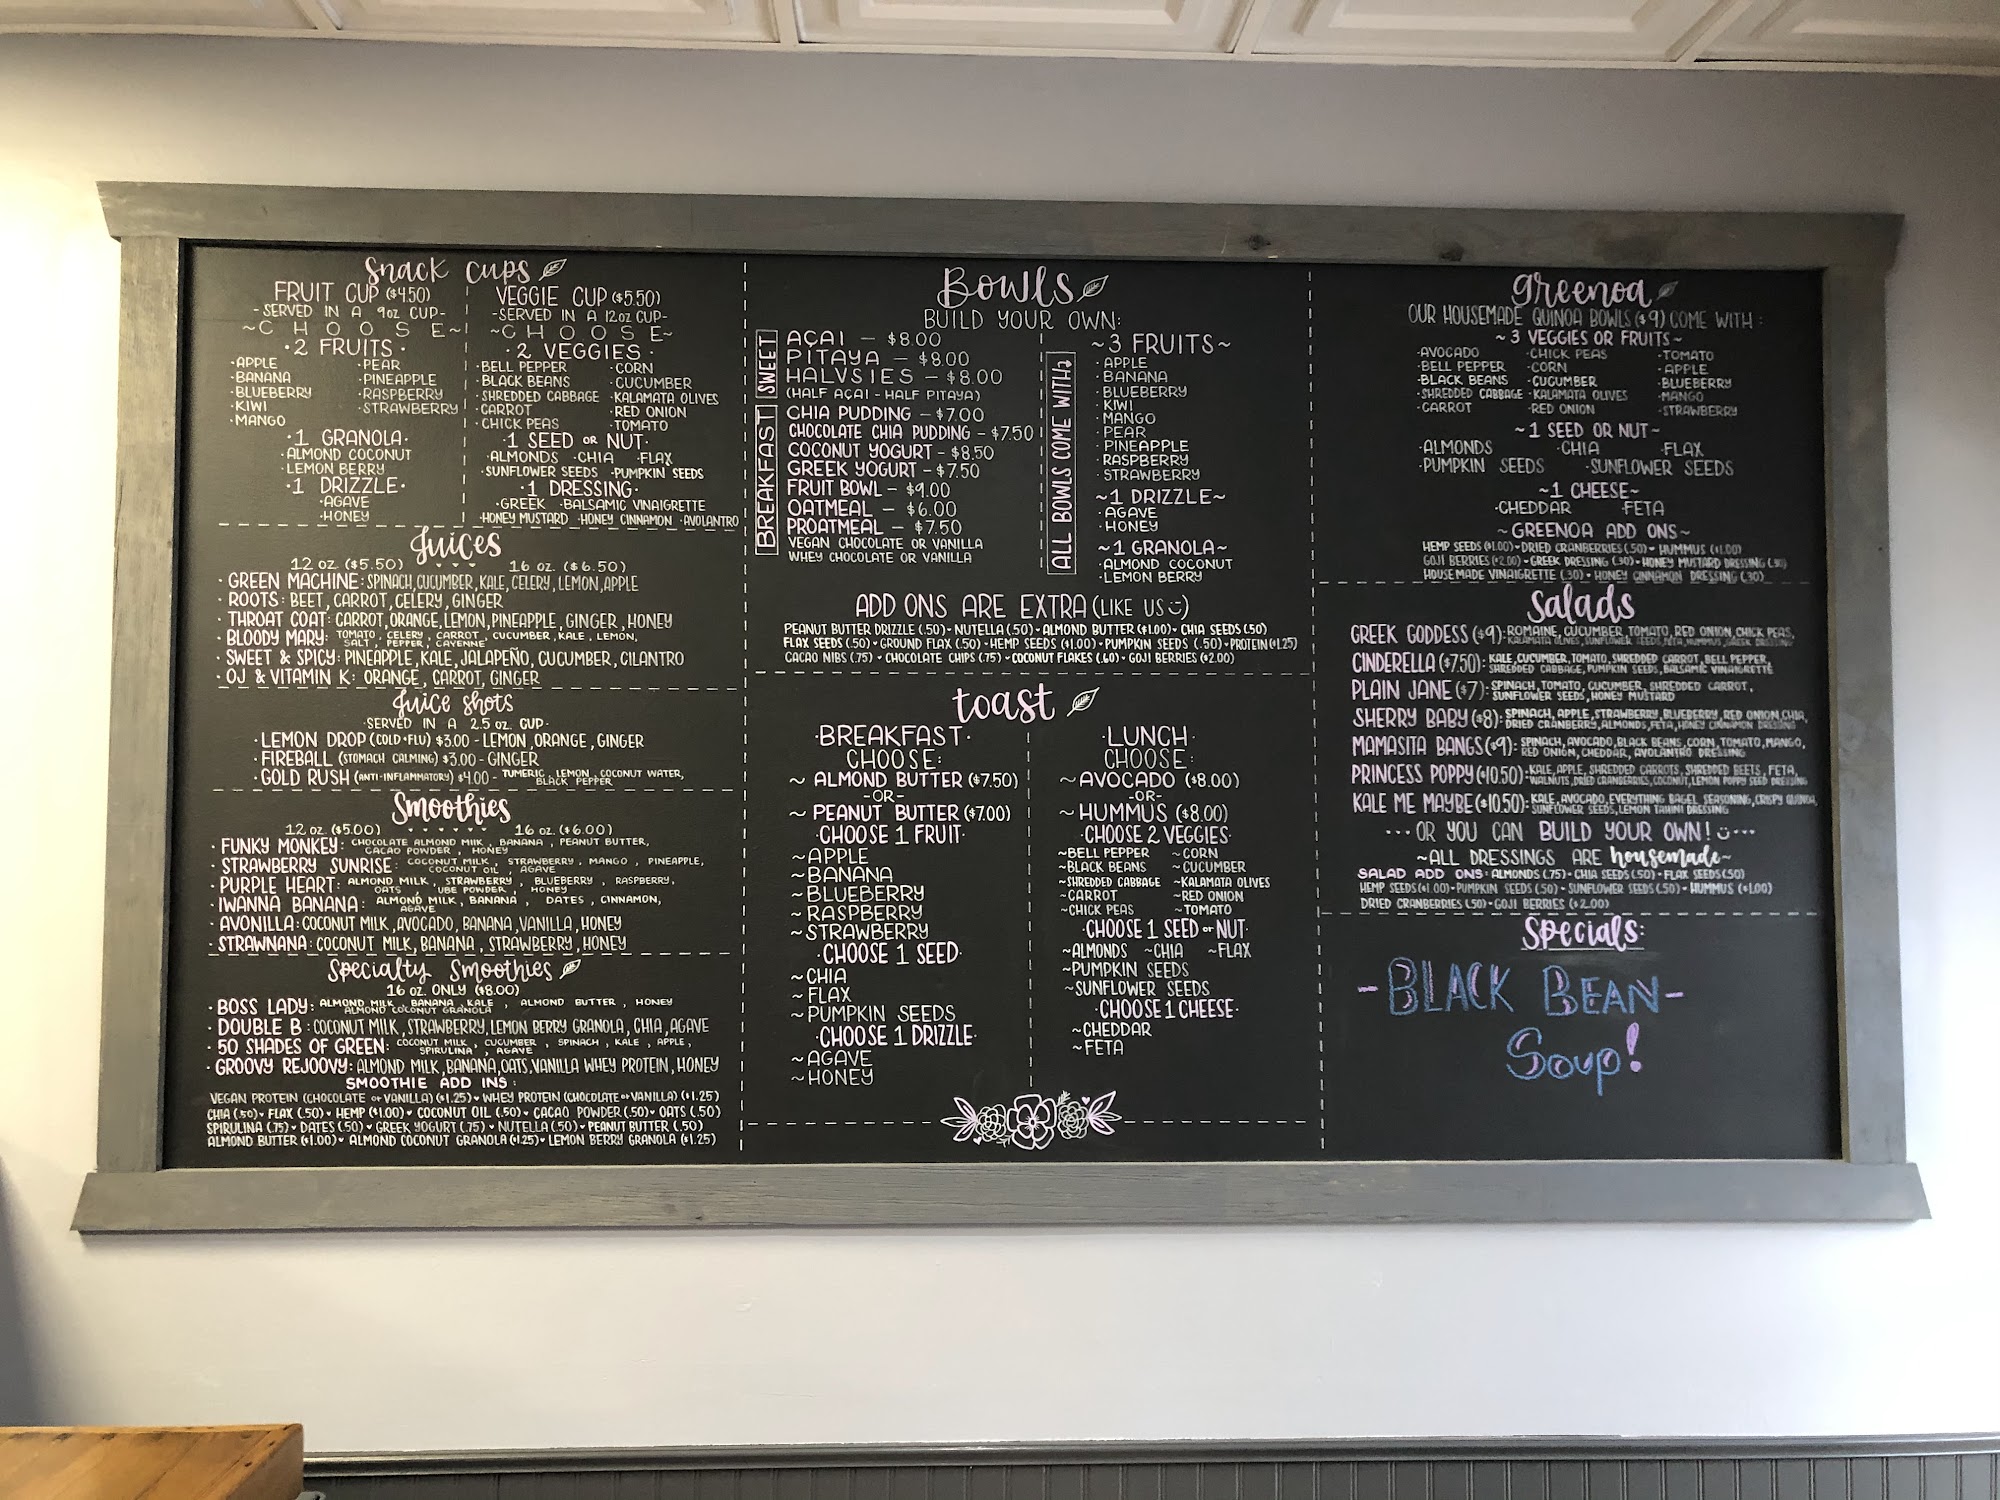 Snack Cups
FRUIT CUP ($4.50)
-SERVED IN A 9oz CUP-
~CHOOSE~
·2 FRUITS·
·APPLE ·PEAR
·BANANA ·PINEAPPLE
·BLUEBERRY ·RASPBERRY
·KIWI ·STRAWBERRY
·MANGO
·1 GRANOLA·
·ALMOND COCONUT
·LEMON BERRY
·1 DRIZZLE·
·AGAVE
·HONEY
VEGGIE CUP ($5.50)
-SERVED IN A 12oz CUP-
~CHOOSE~
·2 VEGGIES·
·BELL PEPPER ·CORN
·BLACK BEANS ·CUCUMBER
·SHREDDED CABBAGE ·KALAMATA OLIVES
·CARROT ·RED ONION
·CHICK PEAS ·TOMATO
·1 SEED OR NUT·
·ALMONDS ·CHIA ·FLAX
·SUNFLOWER SEEDS ·PUMPKIN SEEDS
·1 DRESSING·
·GREEK ·BALSAMIC VINAIGRETTE
·HONEY MUSTARD ·HONEY CINNAMON ·AVOLANTRO
Juices
12 oz. ($5.50) 16 oz. ($6.50)
· GREEN MACHINE: SPINACH, CUCUMBER, KALE, CELERY, LEMON, APPLE
· ROOTS: BEET, CARROT, CELERY, GINGER
· THROAT COAT: CARROT, ORANGE, LEMON, PINEAPPLE, GINGER, HONEY
· BLOODY MARY: TOMATO, CELERY, CARROT, CUCUMBER, KALE, LEMON,
SALT, PEPPER, CAYENNE
· SWEET & SPICY: PINEAPPLE, KALE, JALAPEÑO, CUCUMBER, CILANTRO
· OJ & VITAMIN K: ORANGE, CARROT, GINGER
Juice Shots
·SERVED IN A 2.5 oz. CUP·
· LEMON DROP (COLD·FLU) $3.00 - LEMON, ORANGE, GINGER
· FIREBALL (STOMACH CALMING) $3.00 - GINGER
· GOLD RUSH (ANTI-INFLAMMATORY) $4.00 - TUMERIC, LEMON, COCONUT WATER,
BLACK PEPPER
Smoothies
12 oz. ($5.00) 16 oz. ($6.00)
· FUNKY MONKEY: CHOCOLATE ALMOND MILK, BANANA, PEANUT BUTTER,
CACAO POWDER, HONEY
· STRAWBERRY SUNRISE: COCONUT MILK, STRAWBERRY, MANGO, PINEAPPLE,
COCONUT OIL, AGAVE
· PURPLE HEART: ALMOND MILK, STRAWBERRY, BLUEBERRY, RASPBERRY,
OATS, UBE POWDER, HONEY
· IWANNA BANANA: ALMOND MILK, BANANA, DATES, CINNAMON,
AGAVE
· AVONILLA: COCONUT MILK, AVOCADO, BANANA, VANILLA, HONEY
· STRAWNANA: COCONUT MILK, BANANA, STRAWBERRY, HONEY
Specialty Smoothies
16 oz. ONLY ($8.00)
· BOSS LADY: ALMOND MILK, BANANA, KALE, ALMOND BUTTER, HONEY
ALMOND COCONUT GRANOLA
· DOUBLE B: COCONUT MILK, STRAWBERRY, LEMON BERRY GRANOLA, CHIA, AGAVE
· 50 SHADES OF GREEN: COCONUT MILK, CUCUMBER, SPINACH, KALE, APPLE,
SPIRULINA, AGAVE
· GROOVY REJOOVY: ALMOND MILK, BANANA, OATS, VANILLA WHEY PROTEIN, HONEY
SMOOTHIE ADD INS:
VEGAN PROTEIN (CHOCOLATE or VANILLA) ($1.25) · WHEY PROTEIN (CHOCOLATE or VANILLA) ($1.25)
CHIA (.50) · FLAX (.50) · HEMP ($1.00) · COCONUT OIL (.50) · CACAO POWDER (.50) · OATS (.50)
SPIRULINA (.75) · DATES (.50) · GREEK YOGURT (.75) · NUTELLA (.50) · PEANUT BUTTER (.50)
ALMOND BUTTER ($1.00) · ALMOND COCONUT GRANOLA ($1.25) · LEMON BERRY GRANOLA ($1.25)
Bowls
BUILD YOUR OWN:
SWEET
AÇAI - $8.00
PITAYA - $8.00
HALVSIES - $8.00
(HALF AÇAI - HALF PITAYA)
BREAKFAST
CHIA PUDDING - $7.00
CHOCOLATE CHIA PUDDING - $7.50
COCONUT YOGURT - $8.50
GREEK YOGURT - $7.50
FRUIT BOWL - $9.00
OATMEAL - $6.00
PROATMEAL - $7.50
VEGAN CHOCOLATE OR VANILLA
WHEY CHOCOLATE OR VANILLA
ALL BOWLS COME WITH
~3 FRUITS~
·APPLE
·BANANA
·BLUEBERRY
·KIWI
·MANGO
·PEAR
·PINEAPPLE
·RASPBERRY
·STRAWBERRY
~1 DRIZZLE~
·AGAVE
·HONEY
~1 GRANOLA~
·ALMOND COCONUT
·LEMON BERRY
ADD ONS ARE EXTRA (LIKE US)
PEANUT BUTTER DRIZZLE (.50) · NUTELLA (.50) · ALMOND BUTTER ($1.00) · CHIA SEEDS (.50)
FLAX SEEDS (.50) · GROUND FLAX (.50) · HEMP SEEDS ($1.00) · PUMPKIN SEEDS (.50) · PROTEIN ($1.25)
CACAO NIBS (.75) · CHOCOLATE CHIPS (.75) · COCONUT FLAKES (.60) · GOJI BERRIES ($2.00)
toast
·BREAKFAST·
CHOOSE:
~ ALMOND BUTTER ($7.50)
-OR-
~ PEANUT BUTTER ($7.00)
·CHOOSE 1 FRUIT·
~APPLE
~BANANA
~BLUEBERRY
~RASPBERRY
~STRAWBERRY
·CHOOSE 1 SEED·
~CHIA
~FLAX
~PUMPKIN SEEDS
·CHOOSE 1 DRIZZLE·
~AGAVE
~HONEY
·LUNCH·
CHOOSE:
~AVOCADO ($8.00)
-OR-
~HUMMUS ($8.00)
·CHOOSE 2 VEGGIES·
~BELL PEPPER ~CORN
~BLACK BEANS ~CUCUMBER
~SHREDDED CABBAGE ~KALAMATA OLIVES
~CARROT ~RED ONION
~CHICK PEAS ~TOMATO
·CHOOSE 1 SEED or NUT·
~ALMONDS ~CHIA ~FLAX
~PUMPKIN SEEDS
~SUNFLOWER SEEDS
·CHOOSE 1 CHEESE·
~CHEDDAR
~FETA
greenoa
OUR HOUSEMADE QUINOA BOWLS ($9) COME WITH:
~3 VEGGIES OR FRUITS~
·AVOCADO ·CHICK PEAS ·TOMATO
·BELL PEPPER ·CORN ·APPLE
·BLACK BEANS ·CUCUMBER ·BLUEBERRY
·SHREDDED CABBAGE ·KALAMATA OLIVES ·MANGO
·CARROT ·RED ONION ·STRAWBERRY
~1 SEED OR NUT~
·ALMONDS ·CHIA ·FLAX
·PUMPKIN SEEDS ·SUNFLOWER SEEDS
~1 CHEESE~
·CHEDDAR ·FETA
~GREENOA ADD ONS~
HEMP SEEDS ($1.00) · DRIED CRANBERRIES (.50) · HUMMUS ($1.00)
GOJI BERRIES ($2.00) · GREEK DRESSING (.30) · HONEY MUSTARD DRESSING (.30)
HOUSEMADE VINAIGRETTE (.30) · HONEY CINNAMON DRESSING (.30)
Salads
GREEK GODDESS ($9): ROMAINE, CUCUMBER, TOMATO, RED ONION, CHICK PEAS,
KALAMATA OLIVES, SUNFLOWER SEEDS, FETA, HUMMUS, GREEK DRESSING
CINDERELLA ($7.50): KALE, CUCUMBER, TOMATO, SHREDDED CARROT, BELL PEPPER,
SHREDDED CABBAGE, PUMPKIN SEEDS, BALSAMIC VINAIGRETTE
PLAIN JANE ($7): SPINACH, TOMATO, CUCUMBER, SHREDDED CARROT,
SUNFLOWER SEEDS, HONEY MUSTARD
SHERRY BABY ($8): SPINACH, APPLE, STRAWBERRY, BLUEBERRY, RED ONION, CHIA,
DRIED CRANBERRY, ALMONDS, FETA, HONEY CINNAMON DRESSING
MAMASITA BANGS ($9): SPINACH, AVOCADO, BLACK BEANS, CORN, TOMATO, MANGO,
RED ONION, CHEDDAR, AVOLANTRO DRESSING
PRINCESS POPPY ($10.50): KALE, APPLE, SHREDDED CARROTS, SHREDDED BEETS, FETA,
WALNUTS, DRIED CRANBERRIES, COCONUT, LEMON POPPY SEED DRESSING
KALE ME MAYBE ($10.50): KALE, AVOCADO, EVERYTHING BAGEL SEASONING, CRISPY QUINOA,
SUNFLOWER SEEDS, LEMON TAHINI DRESSING
···OR YOU CAN BUILD YOUR OWN!···
~ALL DRESSINGS ARE housemade~
SALAD ADD ONS: ALMONDS (.75) · CHIA SEEDS (.50) · FLAX SEEDS (.50)
HEMP SEEDS ($1.00) · PUMPKIN SEEDS (.50) · SUNFLOWER SEEDS (.50) · HUMMUS ($1.00)
DRIED CRANBERRIES (.50) · GOJI BERRIES ($2.00)
Specials:
-BLACK BEAN-
Soup!